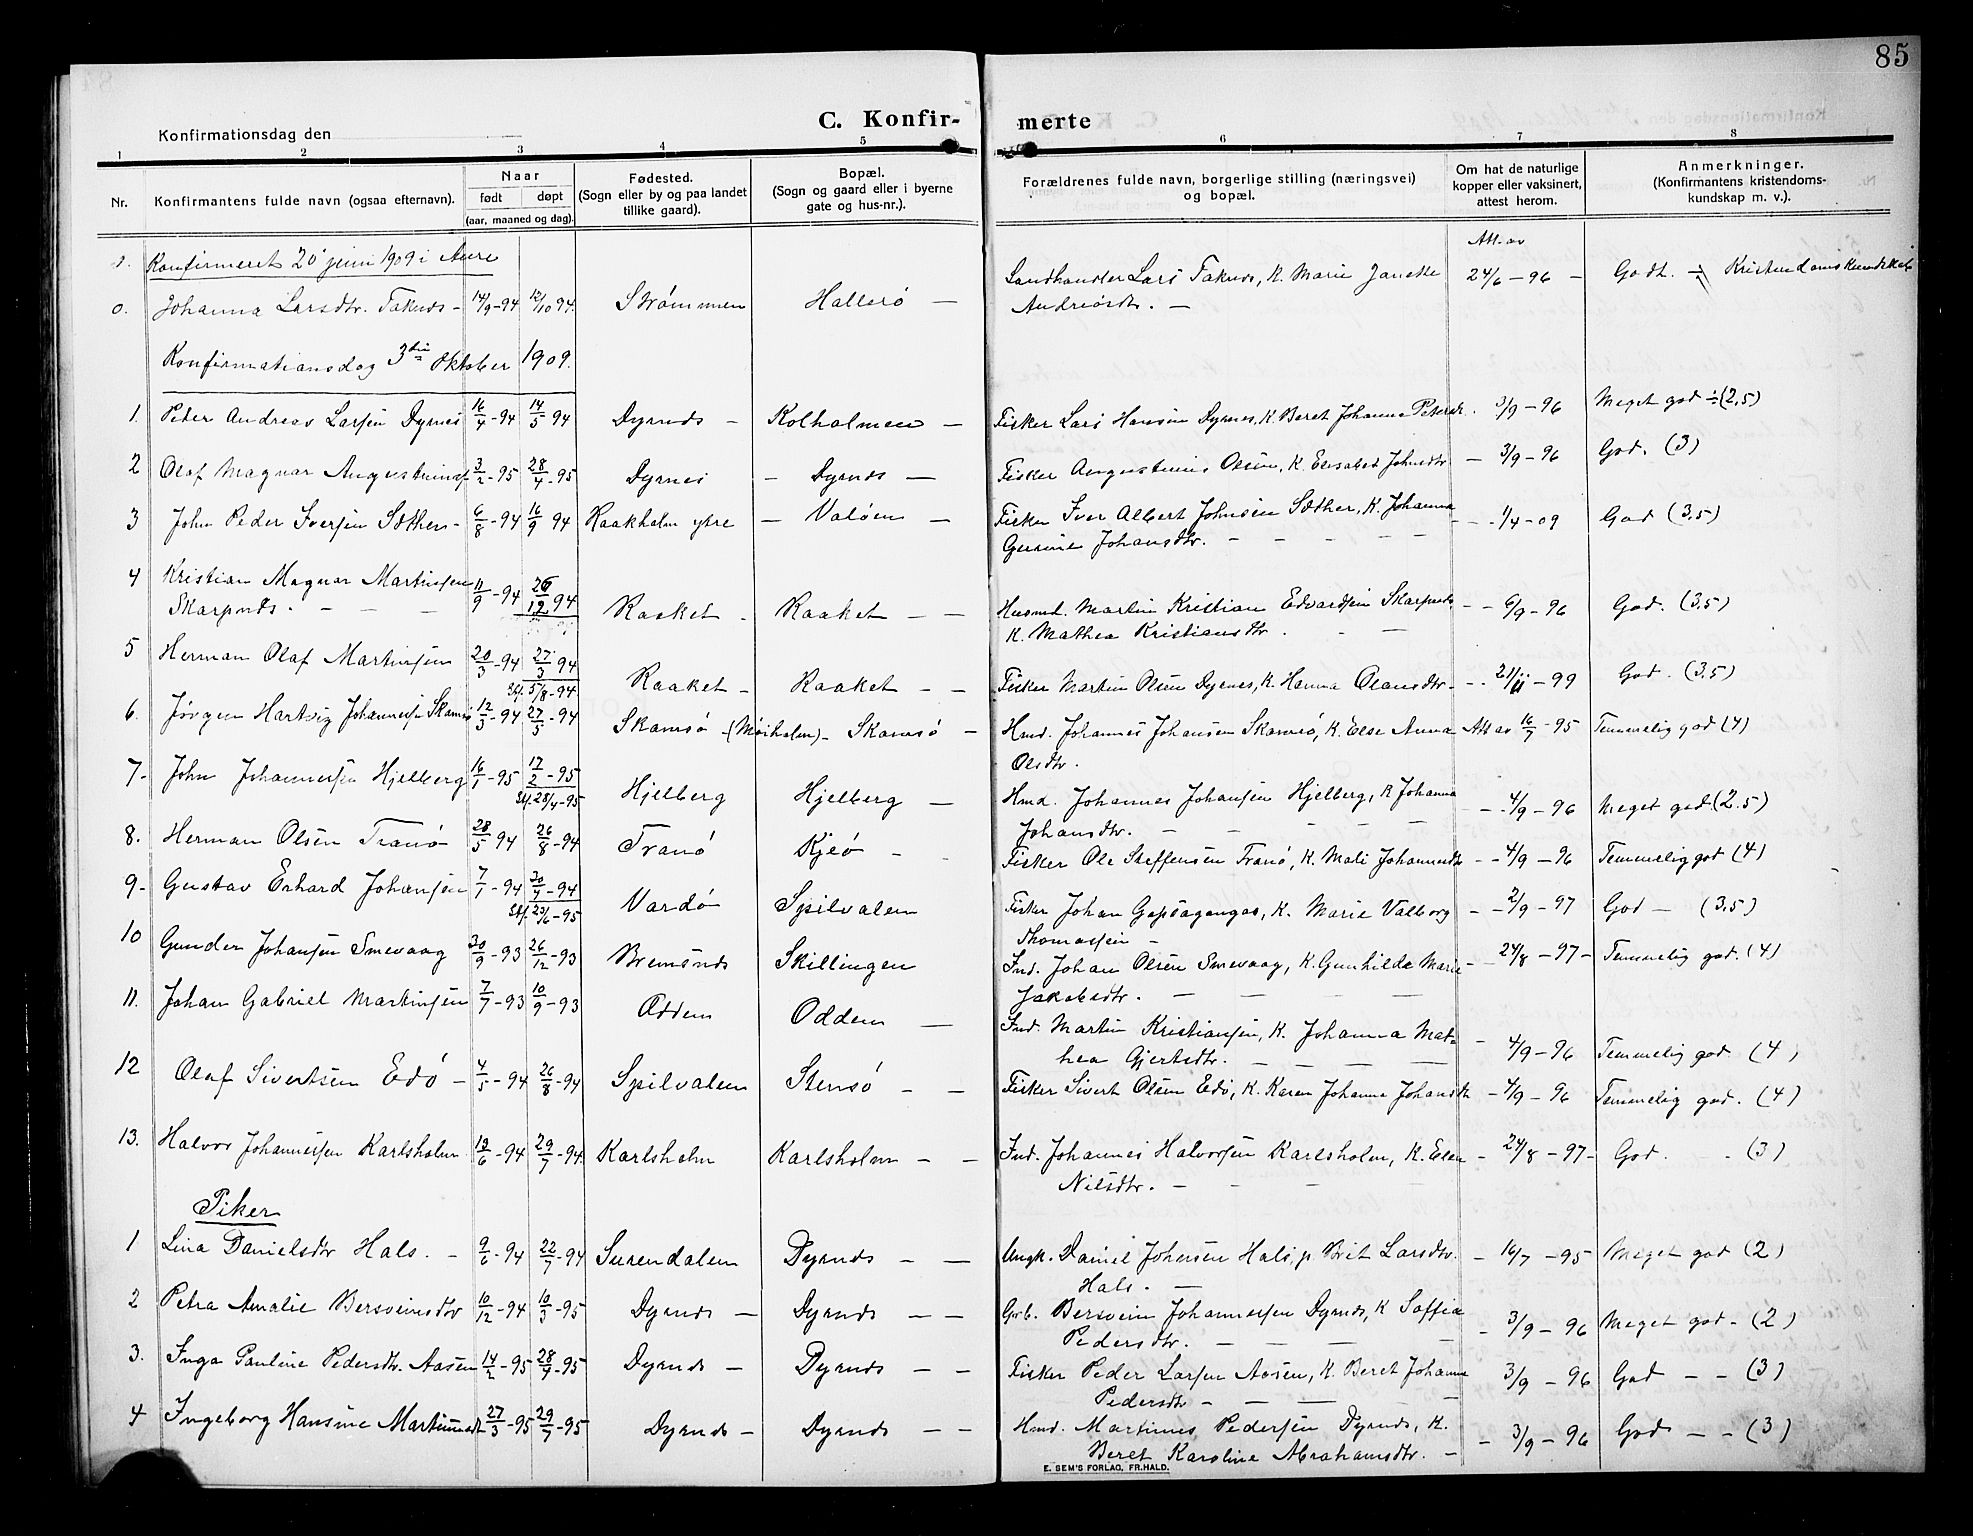 85
C. Konfir- merte
Konfirmationsdag den
1 2 3 4 5 6 7 8
Nr. Konfirmantens fulde navn (ogsaa efternavn). Naar født døpt (aar, maaned og dag). Fødested. (Sogn eller by og paa landet tillike gaard). Bopæl. (Sogn og gaard eller i byerne gate og hus-nr.). Forældrenes fulde navn, borgerlige stilling (næringsvei) og bopæl. Om hat de naturlige kopper eller vaksinert, attest herom. Anmerkninger. (Konfirmantens kristendoms- kundskap m. v.).
Konfirmeret 20 juni 1909 i Aure Att. av
0. Johanna Larsdtr. Taknes - 14/9-94 12/10 94. Strømmen Hallerö — Landhandler Lars Taknes, K. Marie Janette 24/6 - 96 - Godt. Kristendomskundskab
Andreasdtr. —
Konfirmationsdag 3die Oktober 1909.
1. Peter Andreas Larsen Dyrnes 16/4-94 14/5 94 Dyrnes - Kolholmen — Fisker Lars Hansen Dyrnes, K. Beret Johanna Petersdtr. 3/9 - 96 Meget god ÷(2,5)
2 Olaf Magnar Augustinusen 3/2-95 28/4-95 Dyrnes - Dyrnes — Fisker Augustinus Olsen, K. Elisabet Johnsdtr — 3/9 - 96 God. (3)
3 John Peder Iversen Sæther - 6/8-94 16/9 94 Raakholm ytre - Valöen — Fisker Iver Albert Johnsen Sæther, K. Johanna - - 1/4-09 God (3,5)
Gurine Johansdtr. - - - - -
4 Kristian Magnar Martinsen 11/9-94 26/12 94
Skarpnes. - - - Raaket - Raaket — — Husmd. Martin Kristian Edvardsen Skarpnes - - 6/9-96 God. (3,5)
K. Mathea Kristiansdtr. - —
5 Herman Olaf Martinsen 20/3-94 27/3 94 Stf. 5/8-94 Raaket - Raaket - - Fisker Martin Olsen Dyrnes, K. Hanna Olansdtr. - - 21/11-99 God. (3,5)
6. Jörgen Hartvig Johannesen Skamsö 12/3-94 27/5-94 Skamsö -(Moiholm)- Skamsö - Hmd. Johannes Johansen Skamsö, K. Else Anna Att av 16/7-95 Temmelig god (4)
Olsdtr.
7. John Johannesen Hjelberg 16/1-95 17/2-95 Stf. 28/4-95 Hjelberg Hjelberg — Hmd. Johannes Johansen Hjelberg, K Johanna - - 4/9-96 Meget god.(2.5)
Johansdtr. — - - - -
8. Herman Olsen Tranö 28/5 94 26/8-94 Tranö Kjeö - - Fisker Ole Steffensen Tranö, K. Mali Johannesdtr - - 4/9-96 Temmelig god (4)
9- Gustav Erhard Johansen 7/1-94 Stf. 25/6-95 Vardö Spilvalen Fisker Johan , K. Marie Valborg - - 2/9-97 God — (3,5)
Thomassen -
10 Gunder Johansen Smevaag 30/9-93 26/12-93 Bremsnes Skillingen Ind. Johan Olsen Smevaag, K. Gunhilde Marie - - 24/8-97- Temmelig god. (4)
Jakobsdtr. — — — —
11. Johan Gabriel Martinsen 7/7-93 10/9-93 Odden Odden — Ind. Martin Kristiansen, K. Johanna Mat- - 4/9-96 Temmelig god. (4)
hea Gjertsdtr. — — — — —
12 Olaf Sivertsen Edö - 4/5-94 26/8-94 Spilvalen Stensö - - Fisker Sivert Olsen Edö, K. Karen Johanna Johansdtr - 4/9-96 Temmelig god. (4)
13. Halvor Johannesen Karlsholm 13/6-94 29/7-94. Karlsholm Karlsholm - - Ind. Johannes Halvorsen Karlsholm, K. Elen - 24/8-97- God. - (3)
Nilsdtr. — - - —
Piker
1 Lina Danielsdtr Hals. - 9/6-94 22/7-94 Surendalen Dyrnes - — Ungk. Daniel Johnsen Hals, p. Brit Larsdtr. - 16/7-95 Meget god (2)
Hals. —
2 Petra Amalie Bersveinsdtr 10/12-94 10/3-95 Dyrnes - Dyrnes - - Grb. Bersvein Johannessen Dyrnes, K Soffia - 3/9-96 Meget god - (2)
Pedersdtr. — - - —
3. Inga Pauline Pedersdtr. Aasen 14/2-95 28/4-95 Dyrnes - Dyrnes - - Fisker Peder Larsen Aasen, K. Beret Johanne 3/9-96 God - - (3)
Pedersdtr - - — - —
4 Ingeborg Hansine Martinusdtr 27/3-95 29/7-95 Dyrnes - Dyrnes - - Hmd. Martinus Pedersen Dyrnes, K. - 3/9-96 God - - (3)
Beret Karoline Abrahamsdtr. -
E. SEM'S FORLAG, FR.HALD.